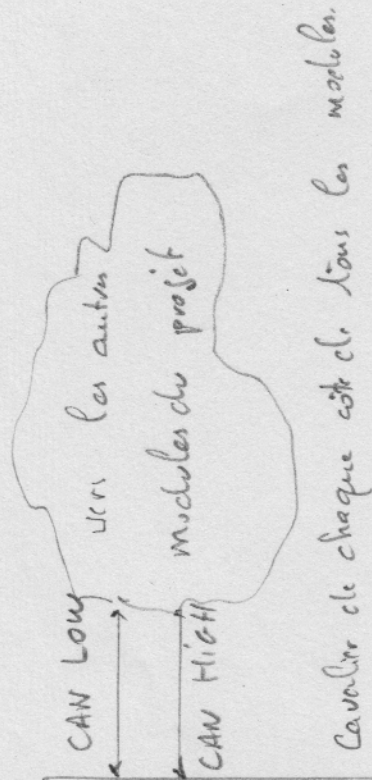 CAN LOW
vers les autres
modules du projet
CAN HIGH
Cavalier de chaque côté de tous les modules.